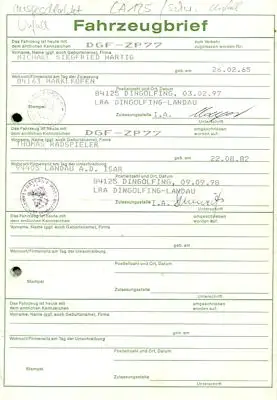 Unfall
Fahrzeugbrief
Das Fahrzeug ist heute mit
dem amtlichen Kennzeichen
DGF-ZP77
zum Verkehr
zugelassen worden für:
Vorname, Name (ggf. auch Geburtsname), Firma
MICHAEL SIEGFRIED HARTIG
geb. am 26.02.65
Wohnort/Firmensitz am Tag der Zulassung
84163 MARKLKOFEN
Postleitzahl und Ort, Datum
84125 DINGOLFING, 03.02.97
LRA DINGOLFING-LANDAU
Stempel
Zulassungsstelle I.A.
Unterschrift
Das Fahrzeug ist heute mit
dem amtlichen Kennzeichen
DGF-ZP77
umgeschrieben
worden auf:
Vorname, Name (ggf. auch Geburtsname), Firma
THOMAS RADSPIELER
geb. am 22.08.82
Wohnort/Firmensitz am Tag der Umschreibung
94405 LANDAU A.D. ISAR
Postleitzahl und Ort, Datum
84125 DINGOLFING, 09.09.98
LRA DINGOLFING-LANDAU
Zulassungsstelle I.A.
Unterschrift
Das Fahrzeug ist heute mit
dem amtlichen Kennzeichen
umgeschrieben
worden auf:
Vorname, Name (ggf. auch Geburtsname), Firma
geb. am
Wohnort/Firmensitz am Tag der Umschreibung
Postleitzahl und Ort, Datum
Stempel
Zulassungsstelle
Unterschrift
Das Fahrzeug ist heute mit
dem amtlichen Kennzeichen
umgeschrieben
worden auf:
Vorname, Name (ggf. auch Geburtsname), Firma
geb. am
Wohnort/Firmensitz am Tag der Umschreibung
Postleitzahl und Ort, Datum
Stempel
Zulassungsstelle
Unterschrift